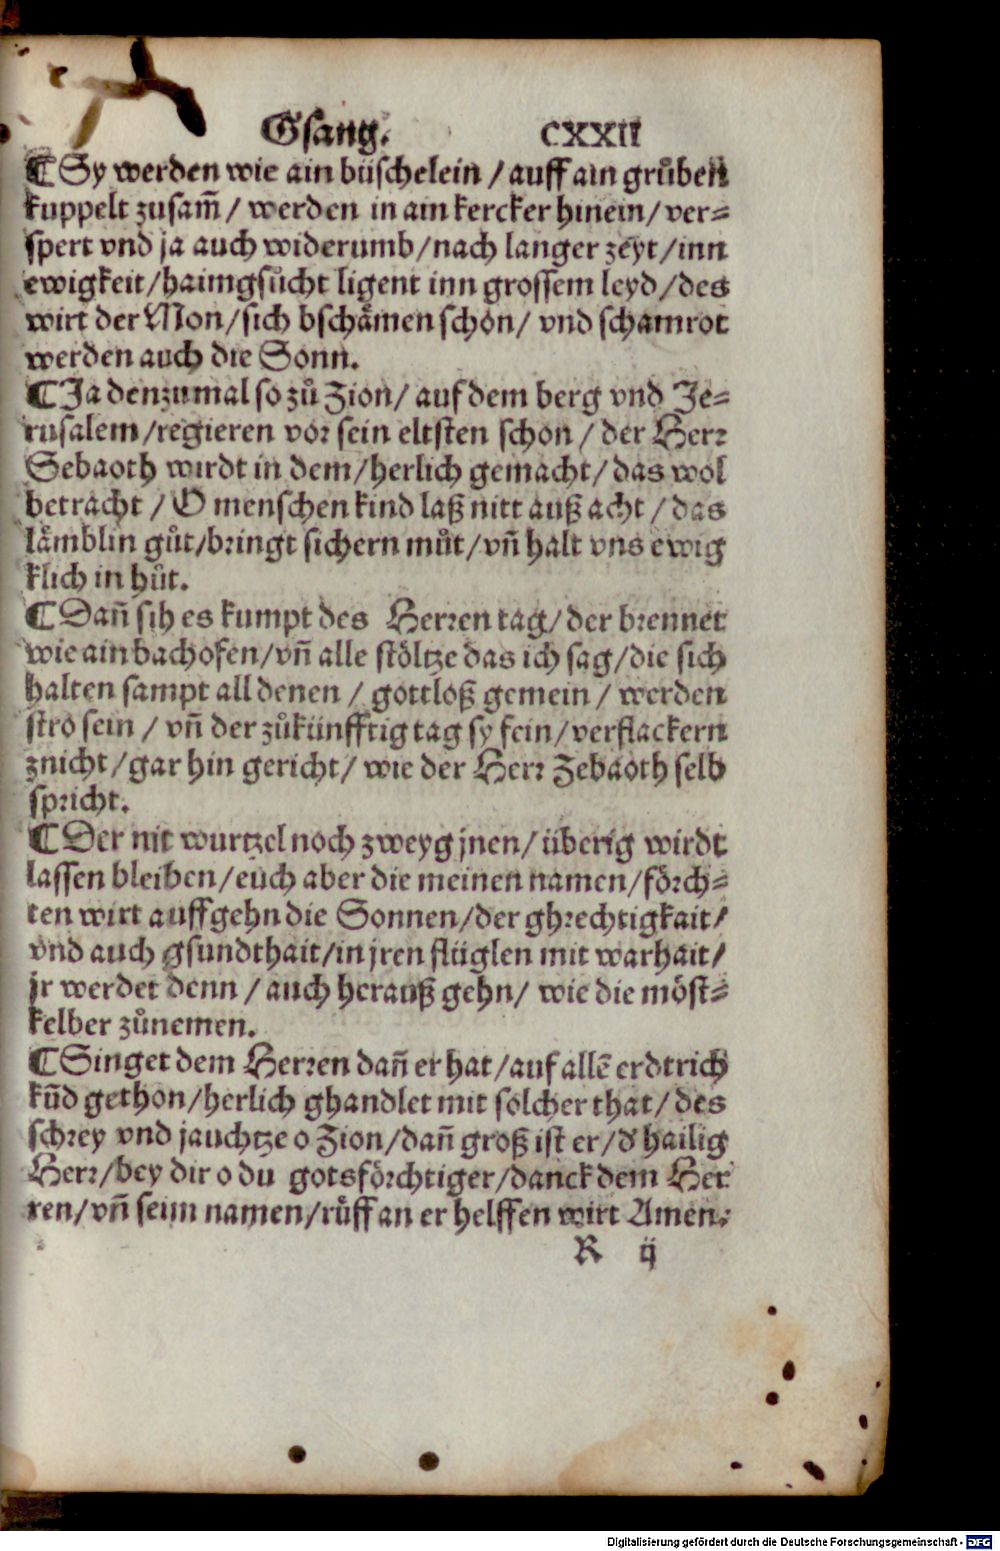 Gsang. CXXII
¶ Sy werden wie ain büschelein / auff ain grůben
kuppelt zusam̄ / werden in ain kercker hinein / ver⸗
spert vnd ja auch widerumb / nach langer zeyt / inn
ewigkeit / haimgsůcht ligent inn grossem leyd / des
wirt der Mon / sich bschåmen schon / vnd schamrot
werden auch die Sonn.
¶ Ja denzumal so zů Zion / auf dem berg vnd Je⸗
rusalem / regieren vor sein eltsten schon / der Herr
Sebaoth wirdt in dem / herlich gemacht / das wol
betracht / O menschen kind laß nitt auß acht / das
låmblin gůt / bringt sichern můt / vn̄ halt vns ewig
klich in hůt.
¶ Dan̄ sih es kumpt des Herren tag / der brennet
wie ain bachofen / vn̄ alle stöltze das ich sag / die sich
halten sampt all denen / gottloß gemein / werden
stro sein / vn̄ der zůkünfftig tag sy fein / verflackern
znicht / gar hin gericht / wie der Herr Zebaoth selb
spricht.
¶ Der nit wurtzel noch zweyg jnen / überig wirdt
lassen bleiben / euch aber die meinen namen / förch⸗
ten wirt auffgehn die Sonnen / der ghrechtigkait /
vnd auch gsundthait / in jren flüglen mit warhait /
jr werdet denn / auch herauß gehn / wie die möst⸗
kelber zůnemen.
¶ Singet dem Herren dan̄ er hat / auf allē erdtrich
kūd gethon / herlich ghandlet mit solcher that / des
schrey vnd jauchtze o Zion / dan̄ groß ist er / d' hailig
Herr / bey dir o du gotsförchtiger / danck dem Her
ren / vn̄ seim namen / růff an er helffen wirt Amen.
R ij
Digitalisierung gefördert durch die Deutsche Forschungsgemeinschaft - DFG